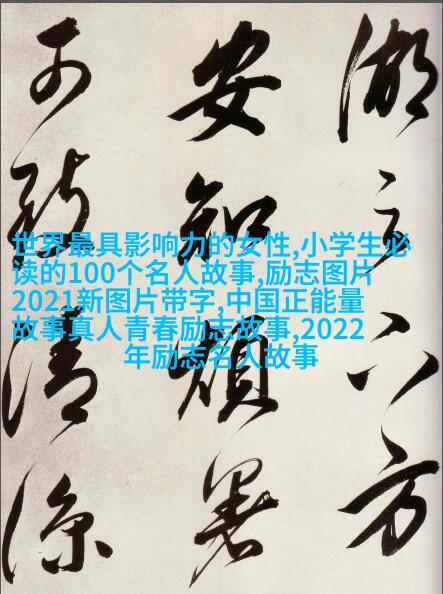 湖八方
安知煩暑
可清涼
世界最具影响力的女性,小学生必
读的100个名人故事,励志图片
2021新图片带字,中国正能量
故事真人青春励志故事,2022
年励志名人故事